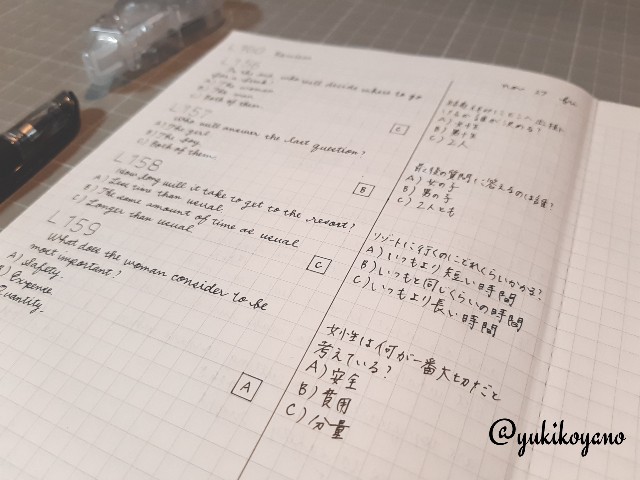 L 160 Review
L 156
In the end, who will decide where to go
for a drink?
A) The woman.
B) The man.
C) Both of them.
C
L 157
Who will answer the last question?
A) The girl
B) The boy
C) Both of them.
B
L 158
How long will it take to get to the resort?
A) Less time than usual
B) The same amount of time as usual
C) Longer than usual
C
L 159
What does the woman consider to be
most important?
A) Safety.
B) Expense
Quantity.
A
Nov 27 fri
B) 男十生
C) 2人
最後の質問に答えるのは誰?
A) 女の子
B) 男の子
C) 2人とも
リゾートに行くのにどれくらいかかる?
A) いつもより短い時間
B) いつもと同じくらいの時間
C) いつもより長い時間
女性は何が一番大切だと
考えている?
A) 安全
B) 費用
C) 分量
@yukikoyano